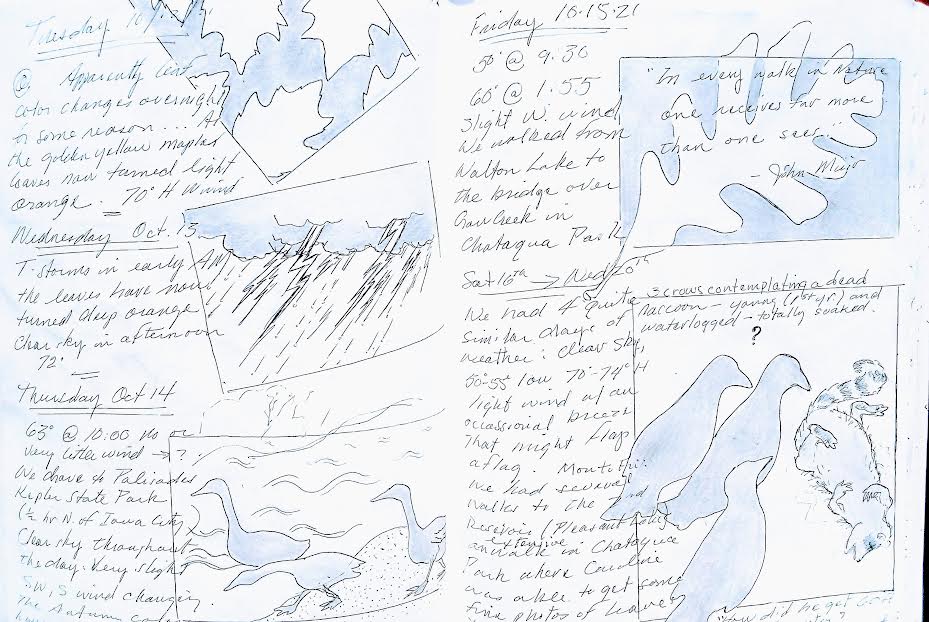 Tuesday 10
@ Apparently
color changes overnight
for some reason... All
the golden yellow maples
leaves now turned light
orange. 70° H Wind
Wednesday Oct. 13
T. storms in early AM
the leaves have now
turned deep orange
Clear sky in afternoon
72°
Thursday Oct 14
63° @ 10:00 no or
very little wind → ?
We drove to Palisades
Kepler State Park
(½ hr N. of Iowa City)
Clear sky throughout
the day. Very slight
SW, S wind changing
The Autumn
Friday 10.15.21
50° @ 9:30
60° @ 1:55
Slight W. wind
We walked from
Walton Lake to
the bridge over
Creek in
Chataqua Park
"In every walk in Nature
one receives far more
than one sees..."
- John Muir
Sat 16th → Wed 20th
We had 4 quite
similar days of
weather: clear sky,
50°-55° low 70°-74° H
light wind w/ an
occassional breeze
that might flap
a flag. Mon to Fri:
We had several
walks to the 2nd
Reservoir (Pleasant
extensive
walk in Chataqua
Park where Caroline
was able to get some
fine photos of leaves
3 crows contemplating a dead
raccoon - young (1st yr.) and
waterlogged - totally soaked.
?
How did he get